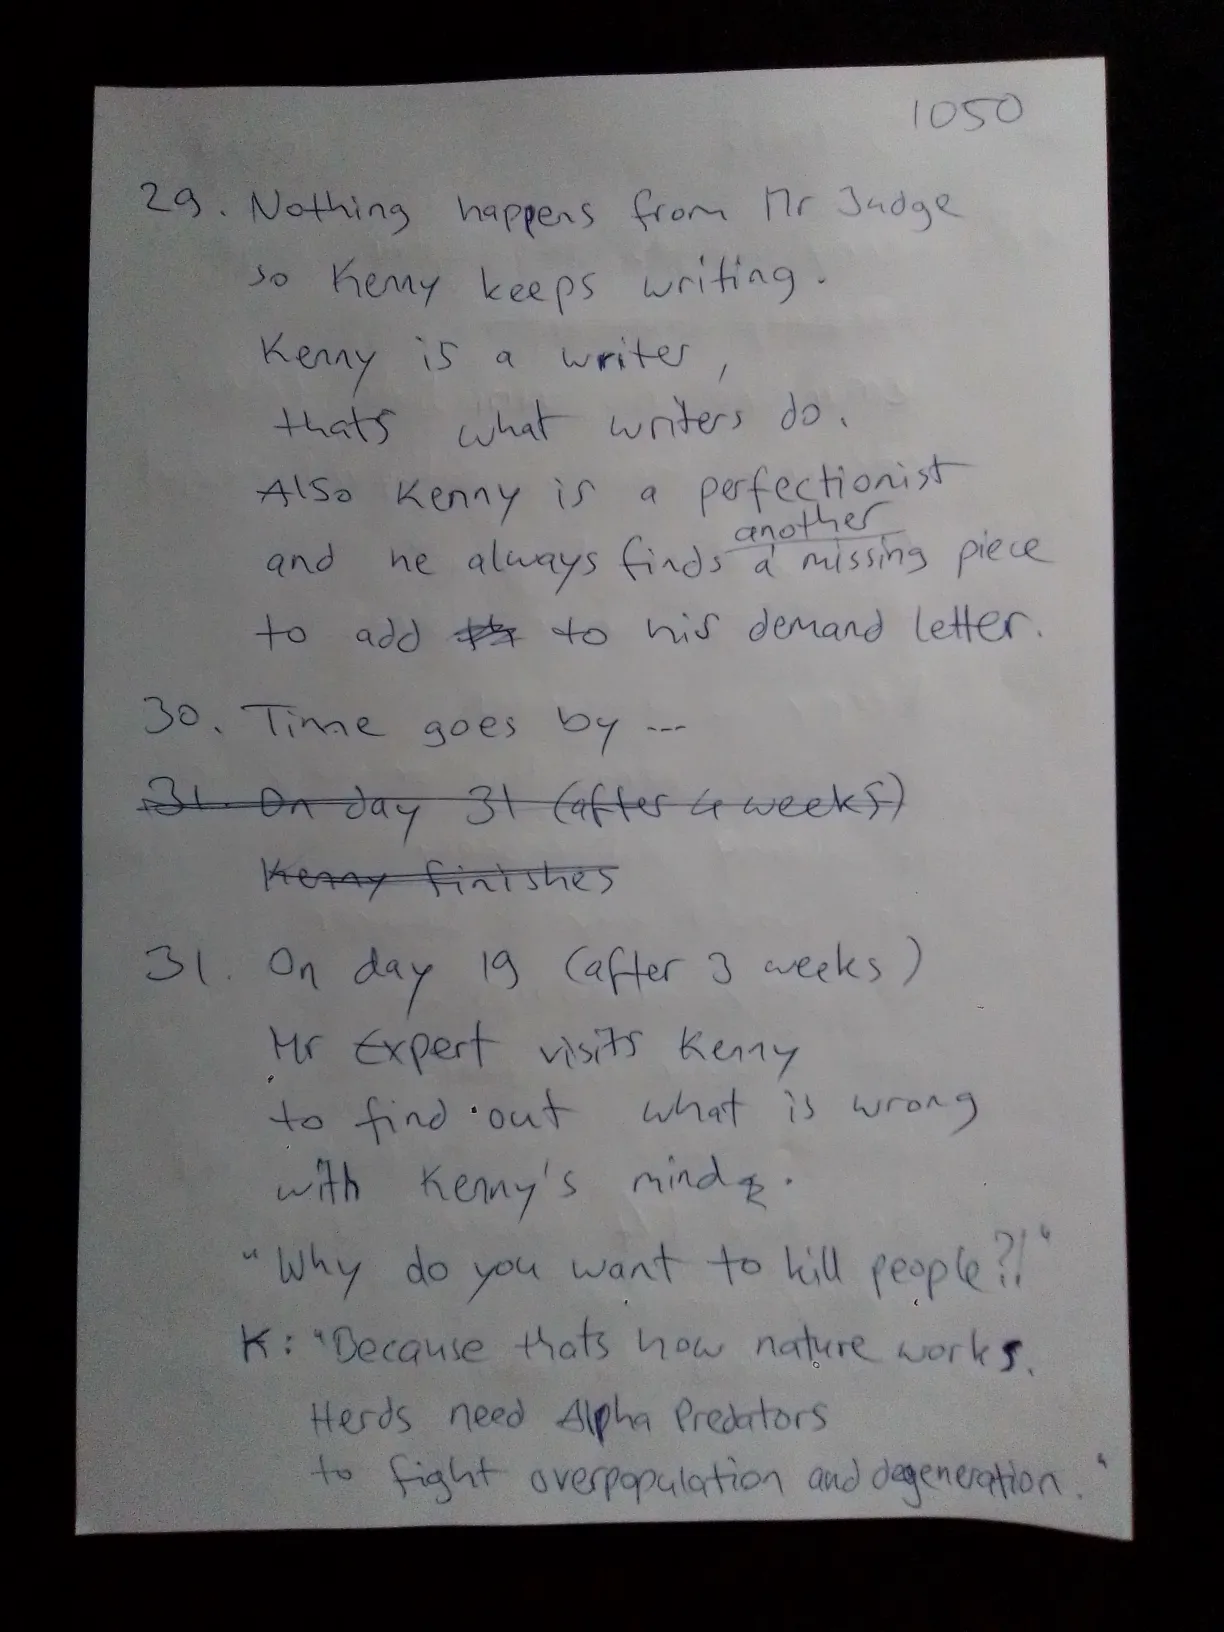 1050
29. Nothing happens from Mr Judge
so Kenny keeps writing.
Kenny is a writer,
thats what writers do.
Also Kenny is a perfectionist
another
and he always finds a missing piece
to add to his demand letter.
30. Time goes by ---
31. On day 31 (after 4 weeks)
Kenny finishes
31. On day 19 (after 3 weeks)
Mr Expert visits Kenny
to find out what is wrong
with Kenny's mind.
"Why do you want to kill people?!"
K: "Because thats how nature works.
Herds need Alpha Predators
to fight overpopulation and degeneration."